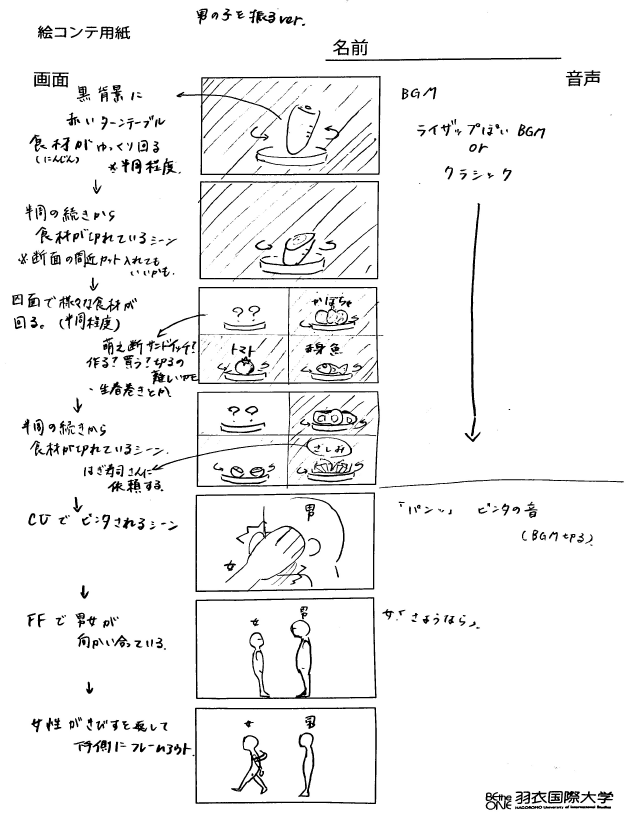 男の子を振るver.
絵コンテ用紙
名前
画面
音声
黒背景に
赤いターンテーブル
食材がゆっくり回る
(にんじん)
※半周程度
BGM
ライザップぽいBGM
or
クラシック
半周の続きから
食材が切れているシーン
※断面の間近カット入れても
いいかも。
四画面で様々な食材が
回る。(半周程度)
??
かぼちゃ
トマト
魚
萌え断サンドイッチ?
作る?買う?切るの
難しいかも
・生春巻きとか
半周の続きから
食材が切れているシーン
??
さしみ
はぎ寿司さんに
依頼する。
CUでビンタされるシーン
男
女
「パンッ」 ビンタの音
(BGM切る)
FFで男女が
向かい合っている。
女
男
女「さようなら」
女性がきびすを返して
下手側にフレームアウト
女
男
BE the ONE 羽衣国際大学
HAGOROMO University of International Studies